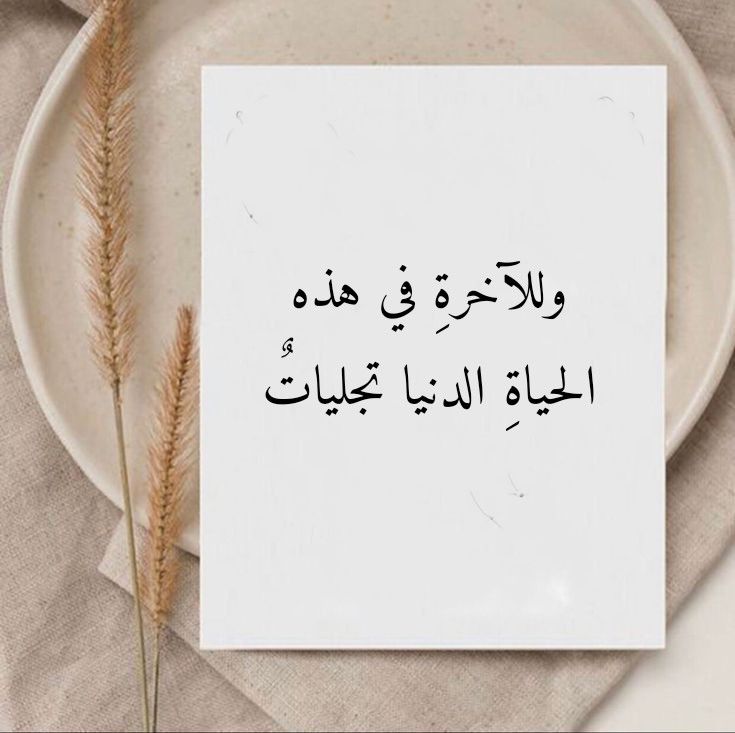 وللآخرةِ في هذه
الحياةِ الدنيا تجلياتٌ